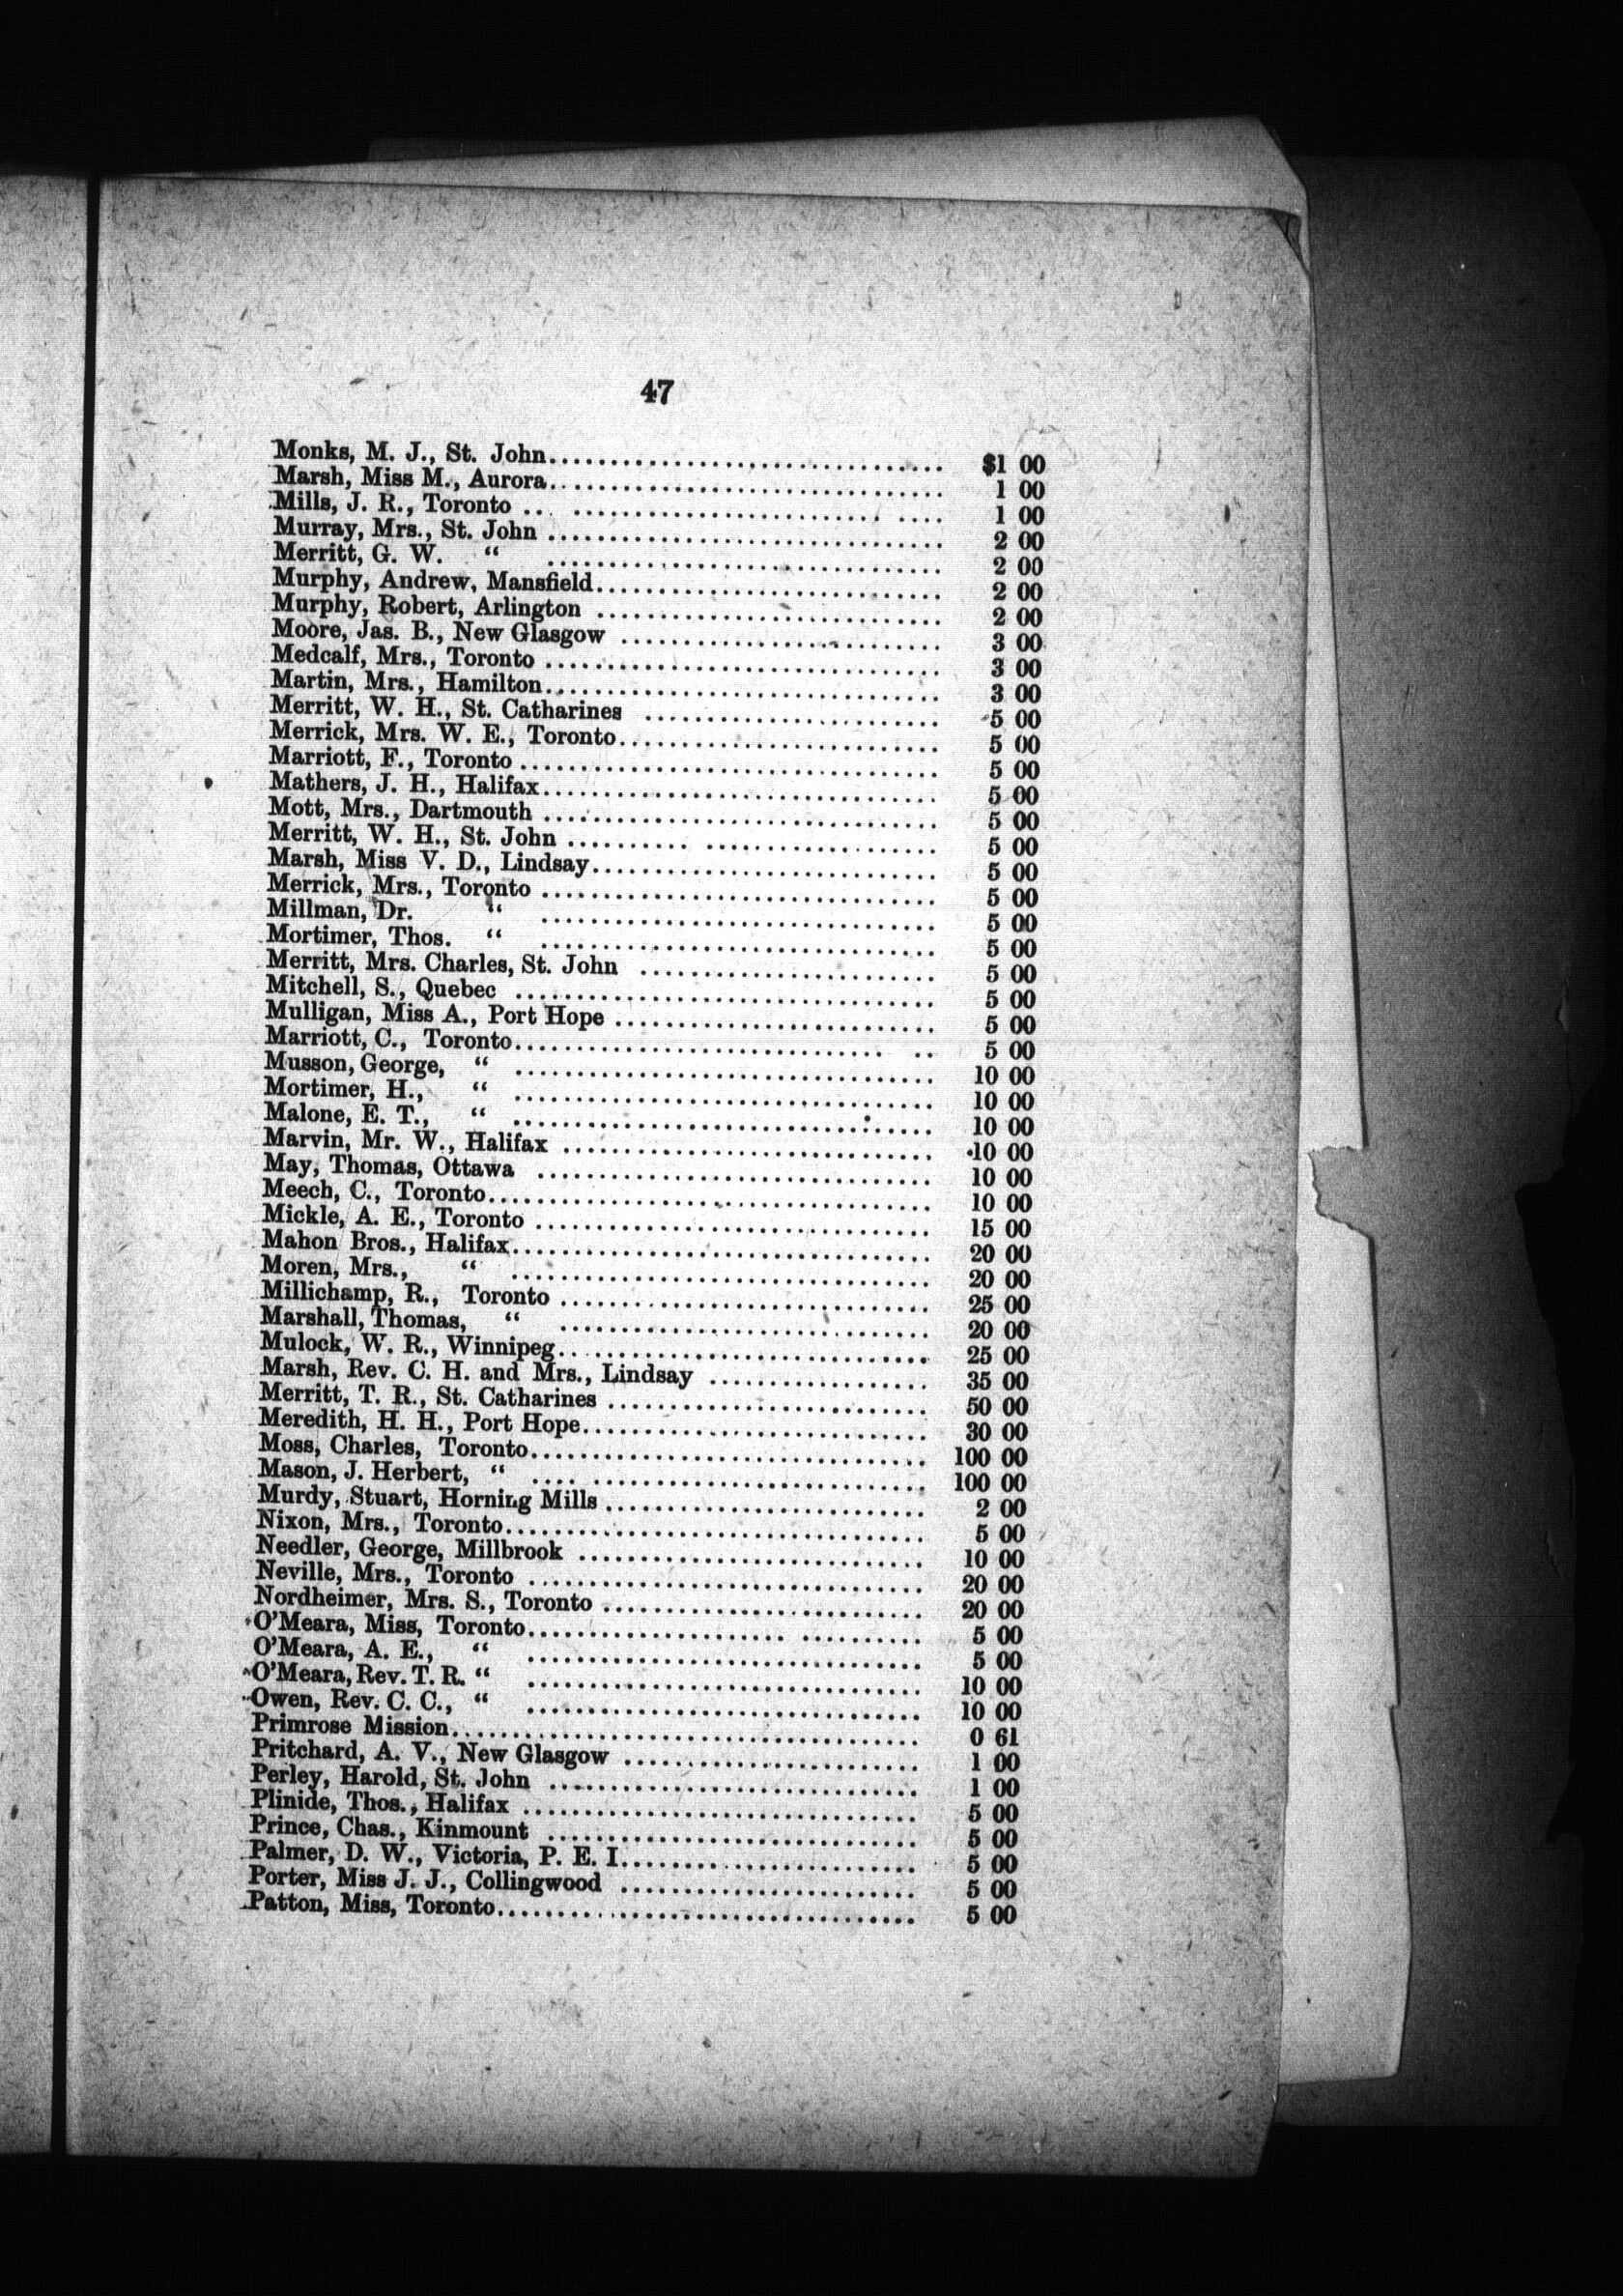 47
Monks, M. J., St. John........................ $1 00
Marsh, Miss M., Aurora........................ 1 00
Mills, J. R., Toronto ........................ 1 00
Murray, Mrs., St. John ........................ 2 00
Merritt, G. W. “ ........................ 2 00
Murphy, Andrew, Mansfield........................ 2 00
Murphy, Robert, Arlington ........................ 2 00
Moore, Jas. B., New Glasgow ........................ 3 00
Medcalf, Mrs., Toronto ........................ 3 00
Martin, Mrs., Hamilton........................ 3 00
Merritt, W. H., St. Catharines ........................ 5 00
Merrick, Mrs. W. E., Toronto........................ 5 00
Marriott, F., Toronto ........................ 5 00
Mathers, J. H., Halifax........................ 5 00
Mott, Mrs., Dartmouth ........................ 5 00
Merritt, W. H., St. John ........................ 5 00
Marsh, Miss V. D., Lindsay........................ 5 00
Merrick, Mrs., Toronto ........................ 5 00
Millman, Dr. “ ........................ 5 00
Mortimer, Thos. “ ........................ 5 00
Merritt, Mrs. Charles, St. John ........................ 5 00
Mitchell, S., Quebec ........................ 5 00
Mulligan, Miss A., Port Hope ........................ 5 00
Marriott, C., Toronto........................ 5 00
Musson, George, “ ........................ 10 00
Mortimer, H., “ ........................ 10 00
Malone, E. T., “ ........................ 10 00
Marvin, Mr. W., Halifax ........................ 10 00
May, Thomas, Ottawa ........................ 10 00
Meech, C., Toronto........................ 10 00
Mickle, A. E., Toronto ........................ 15 00
Mahon Bros., Halifax........................ 20 00
Moren, Mrs., “ ........................ 20 00
Millichamp, R., Toronto ........................ 25 00
Marshall, Thomas, “ ........................ 20 00
Mulock, W. R., Winnipeg........................ 25 00
Marsh, Rev. C. H. and Mrs., Lindsay ........................ 35 00
Merritt, T. R., St. Catharines ........................ 50 00
Meredith, H. H., Port Hope........................ 30 00
Moss, Charles, Toronto........................ 100 00
Mason, J. Herbert, “ ........................ 100 00
Murdy, Stuart, Horning Mills ........................ 2 00
Nixon, Mrs., Toronto........................ 5 00
Needler, George, Millbrook ........................ 10 00
Neville, Mrs., Toronto ........................ 20 00
Nordheimer, Mrs. S., Toronto ........................ 20 00
O'Meara, Miss, Toronto........................ 5 00
O'Meara, A. E., “ ........................ 5 00
O'Meara, Rev. T. R. “ ........................ 10 00
Owen, Rev. C. C., “ ........................ 10 00
Primrose Mission........................ 0 61
Pritchard, A. V., New Glasgow ........................ 1 00
Perley, Harold, St. John ........................ 1 00
Plinide, Thos., Halifax ........................ 5 00
Prince, Chas., Kinmount ........................ 5 00
Palmer, D. W., Victoria, P. E. I........................ 5 00
Porter, Miss J. J., Collingwood ........................ 5 00
Patton, Miss, Toronto........................ 5 00